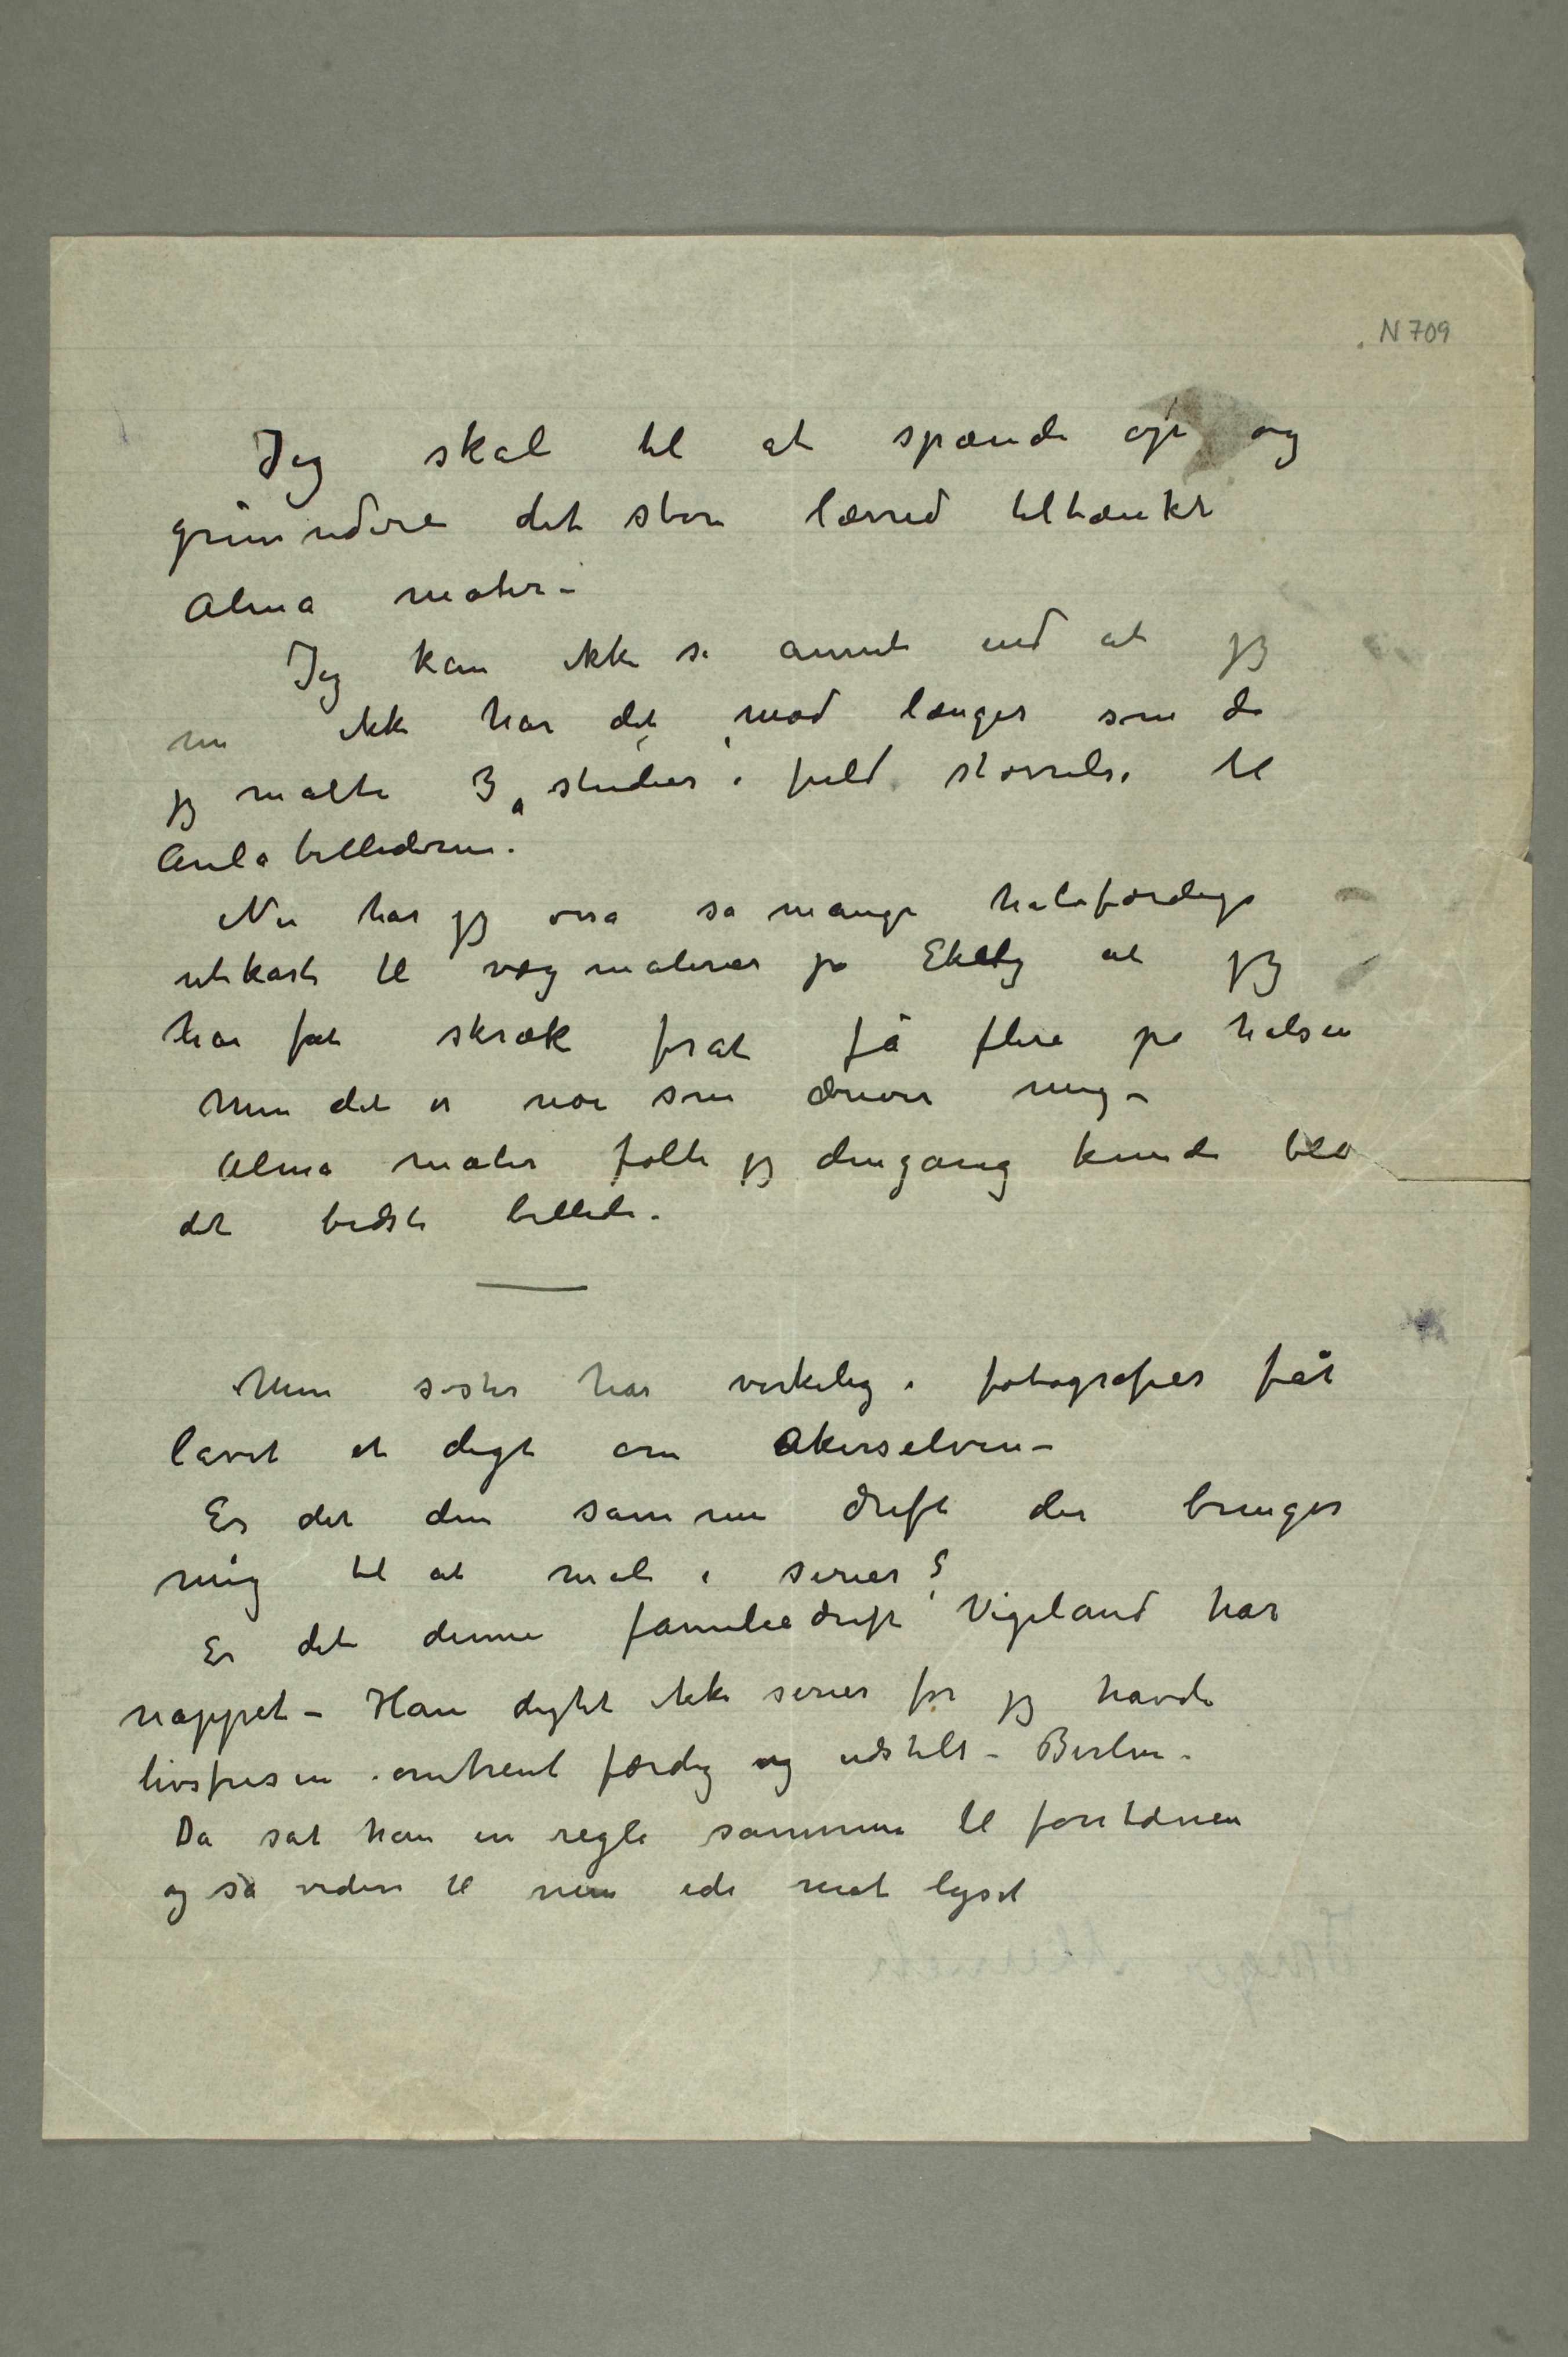 N 709
Jeg skal til at spænde op og
grundere det store lærred tiltænkt
Alma mater –
Jeg kan ikke se annet end at jeg
nu ikke har det mod længer som da
jeg malte 3 studier i fuld størrelse til
Aulabillederne.
Nu har jeg osså så mange halvfærdige
utkast til vægmalerier på Ekely at jeg
har fåt skræk forat få flere på halsen
Men det er noe som driver mig –
Alma mater følte jeg dengang kunde bli
det bedste billede.
Min søster har virkelig i fotografier fåt
lavet et digt om Akerselven –
Er det den samme drift der bringer
mig til at male i serier?
Er det denne familiedrift Vigeland har
nappet – Han digtet ikke serier før jeg havde
livsfrisen omtrent færdig og udstilt – Berlin –
Da sat han en regle sammen til fontænen
og så videre til min ide mot lyset